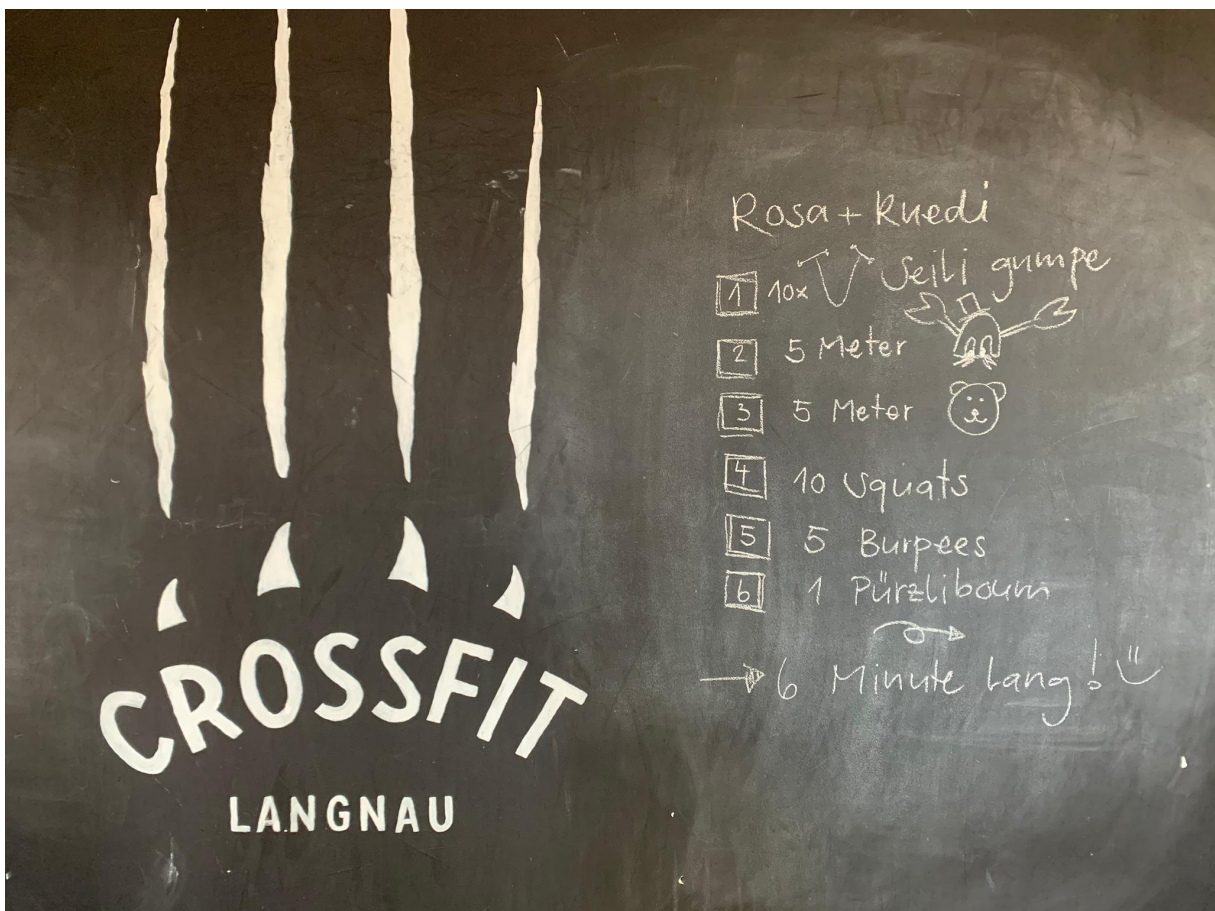 CROSSFIT
LANGNAU
Rosa + Ruedi
1 10x Seili gumpe
2 5 Meter
3 5 Meter
4 10 Squats
5 5 Burpees
6 1 Pürzliboum
→ 6 Minute lang! :)